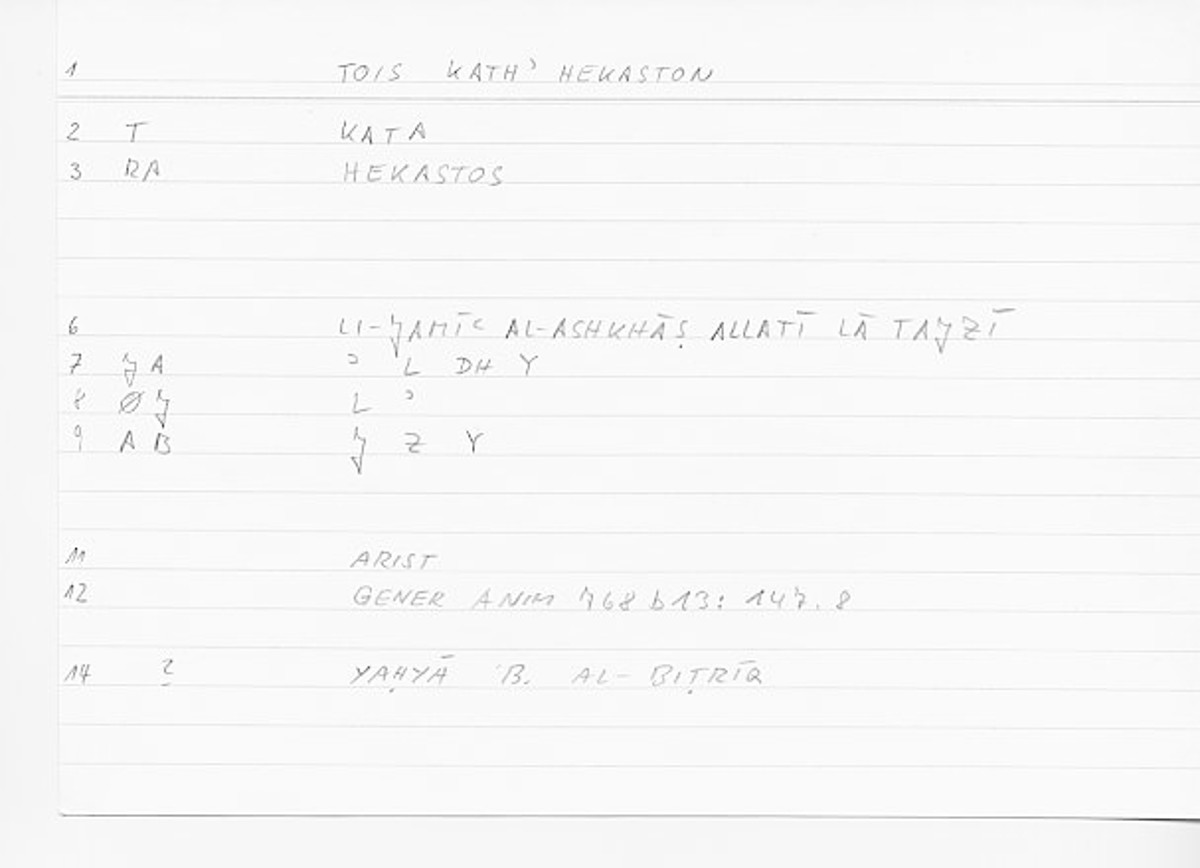 1 TOIS KATH' HEKASTON
2 T KATA
3 RA HEKASTOS
6 LI-JAMĪʿ AL-ASHKHĀṢ ALLATĪ LĀ TAJZĪ
7 JA ʾ L DH Y
8 Ø J L ʾ
9 A B J Z Y
11 ARIST
12 GENER ANIM 768 b 13: 147.8
14 2 YAḤYĀ B. AL-BIṬRĪQ